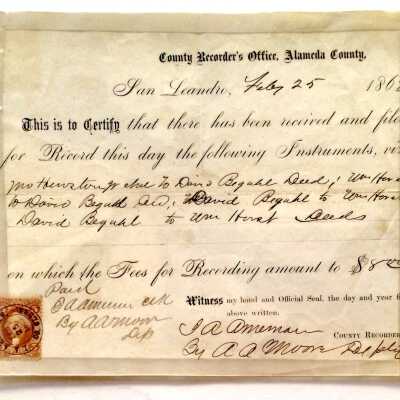 County Recorder's Office, Alameda County,
San Leandro, Feby 25 186
This is to Certify that there has been received and file
for Record this day the following Instruments, viz
to David Beguhl Deed; Wm Horst
to David Beguhl Deed; David Beguhl to Wm Horst
David Beguhl to Wm Horst Deeds
on which the Fees for Recording amount to $8
Paid
Witness my hand and Official Seal, the day and year fi
above written.
By A A Moore
Dep
COUNTY RECORDER
By A A Moore Deputy